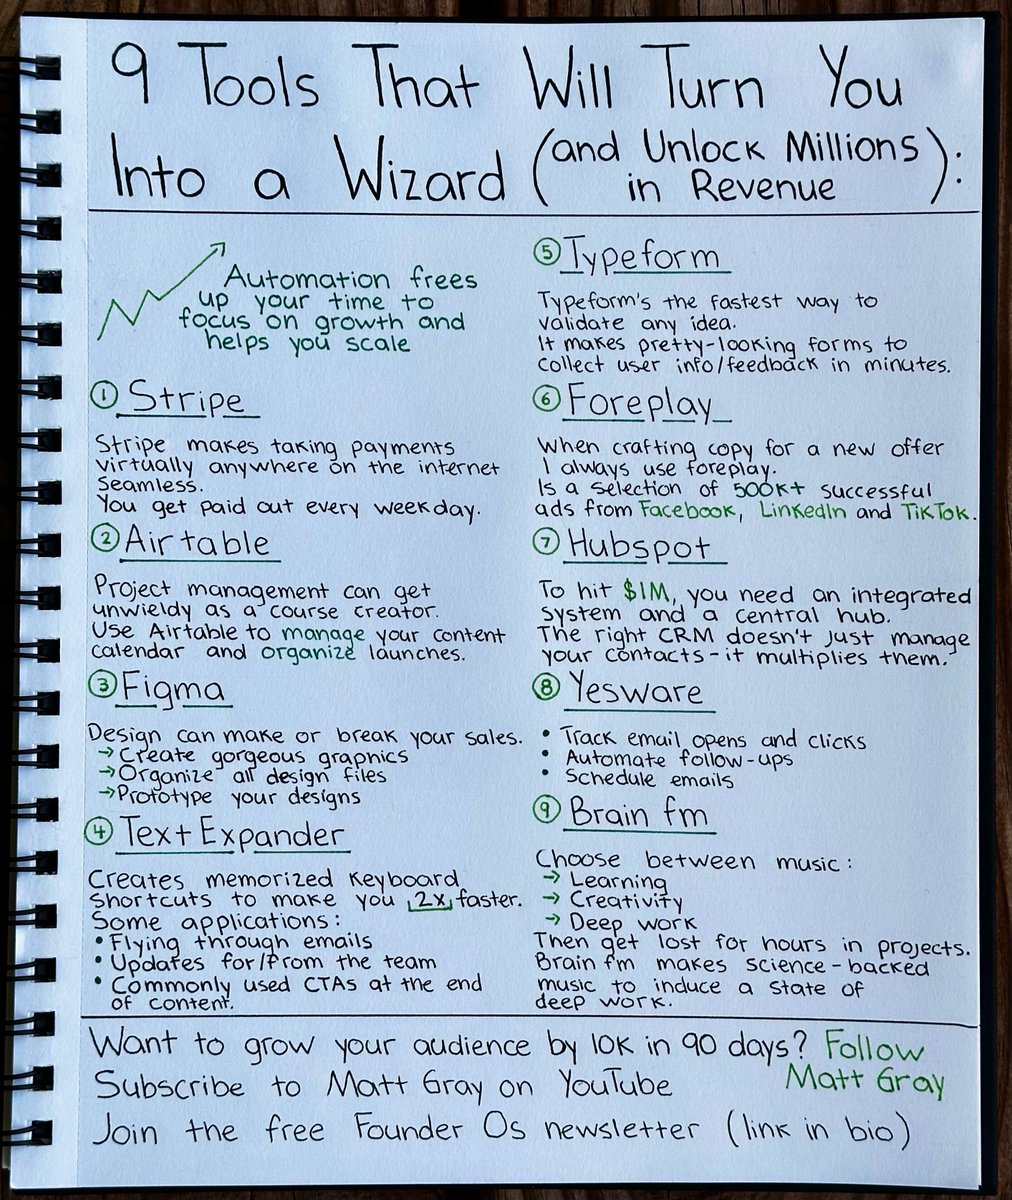 9 Tools That Will Turn You
Into a Wizard (and Unlock Millions
in Revenue):
Automation frees
up your time to
focus on growth and
helps you scale
① Stripe
Stripe makes taking payments
virtually anywhere on the internet
seamless.
You get paid out every weekday.
② Airtable
Project management can get
unwieldy as a course creator.
Use Airtable to manage your content
calendar and organize launches.
③ Figma
Design can make or break your sales.
→ Create gorgeous graphics
→ Organize all design files
→ Prototype your designs
④ Text Expander
Creates memorized keyboard
shortcuts to make you 2x faster.
Some applications:
• Flying through emails
• Updates for/from the team
• Commonly used CTAs at the end
of content.
⑤ Typeform
Typeform's the fastest way to
validate any idea.
It makes pretty-looking forms to
collect user info/feedback in minutes.
⑥ Foreplay
When crafting copy for a new offer
I always use foreplay.
Is a selection of 500K+ successful
ads from Facebook, LinkedIn and TikTok.
⑦ Hubspot
To hit $1M, you need an integrated
system and a central hub.
The right CRM doesn't just manage
your contacts - it multiplies them.
⑧ Yesware
• Track email opens and clicks
• Automate follow-ups
• Schedule emails
⑨ Brain fm
Choose between music:
→ Learning
→ Creativity
→ Deep work
Then get lost for hours in projects.
Brain fm makes science-backed
music to induce a state of
deep work.
Want to grow your audience by 10K in 90 days? Follow
Matt Gray
Subscribe to Matt Gray on YouTube
Join the free Founder Os newsletter (link in bio)